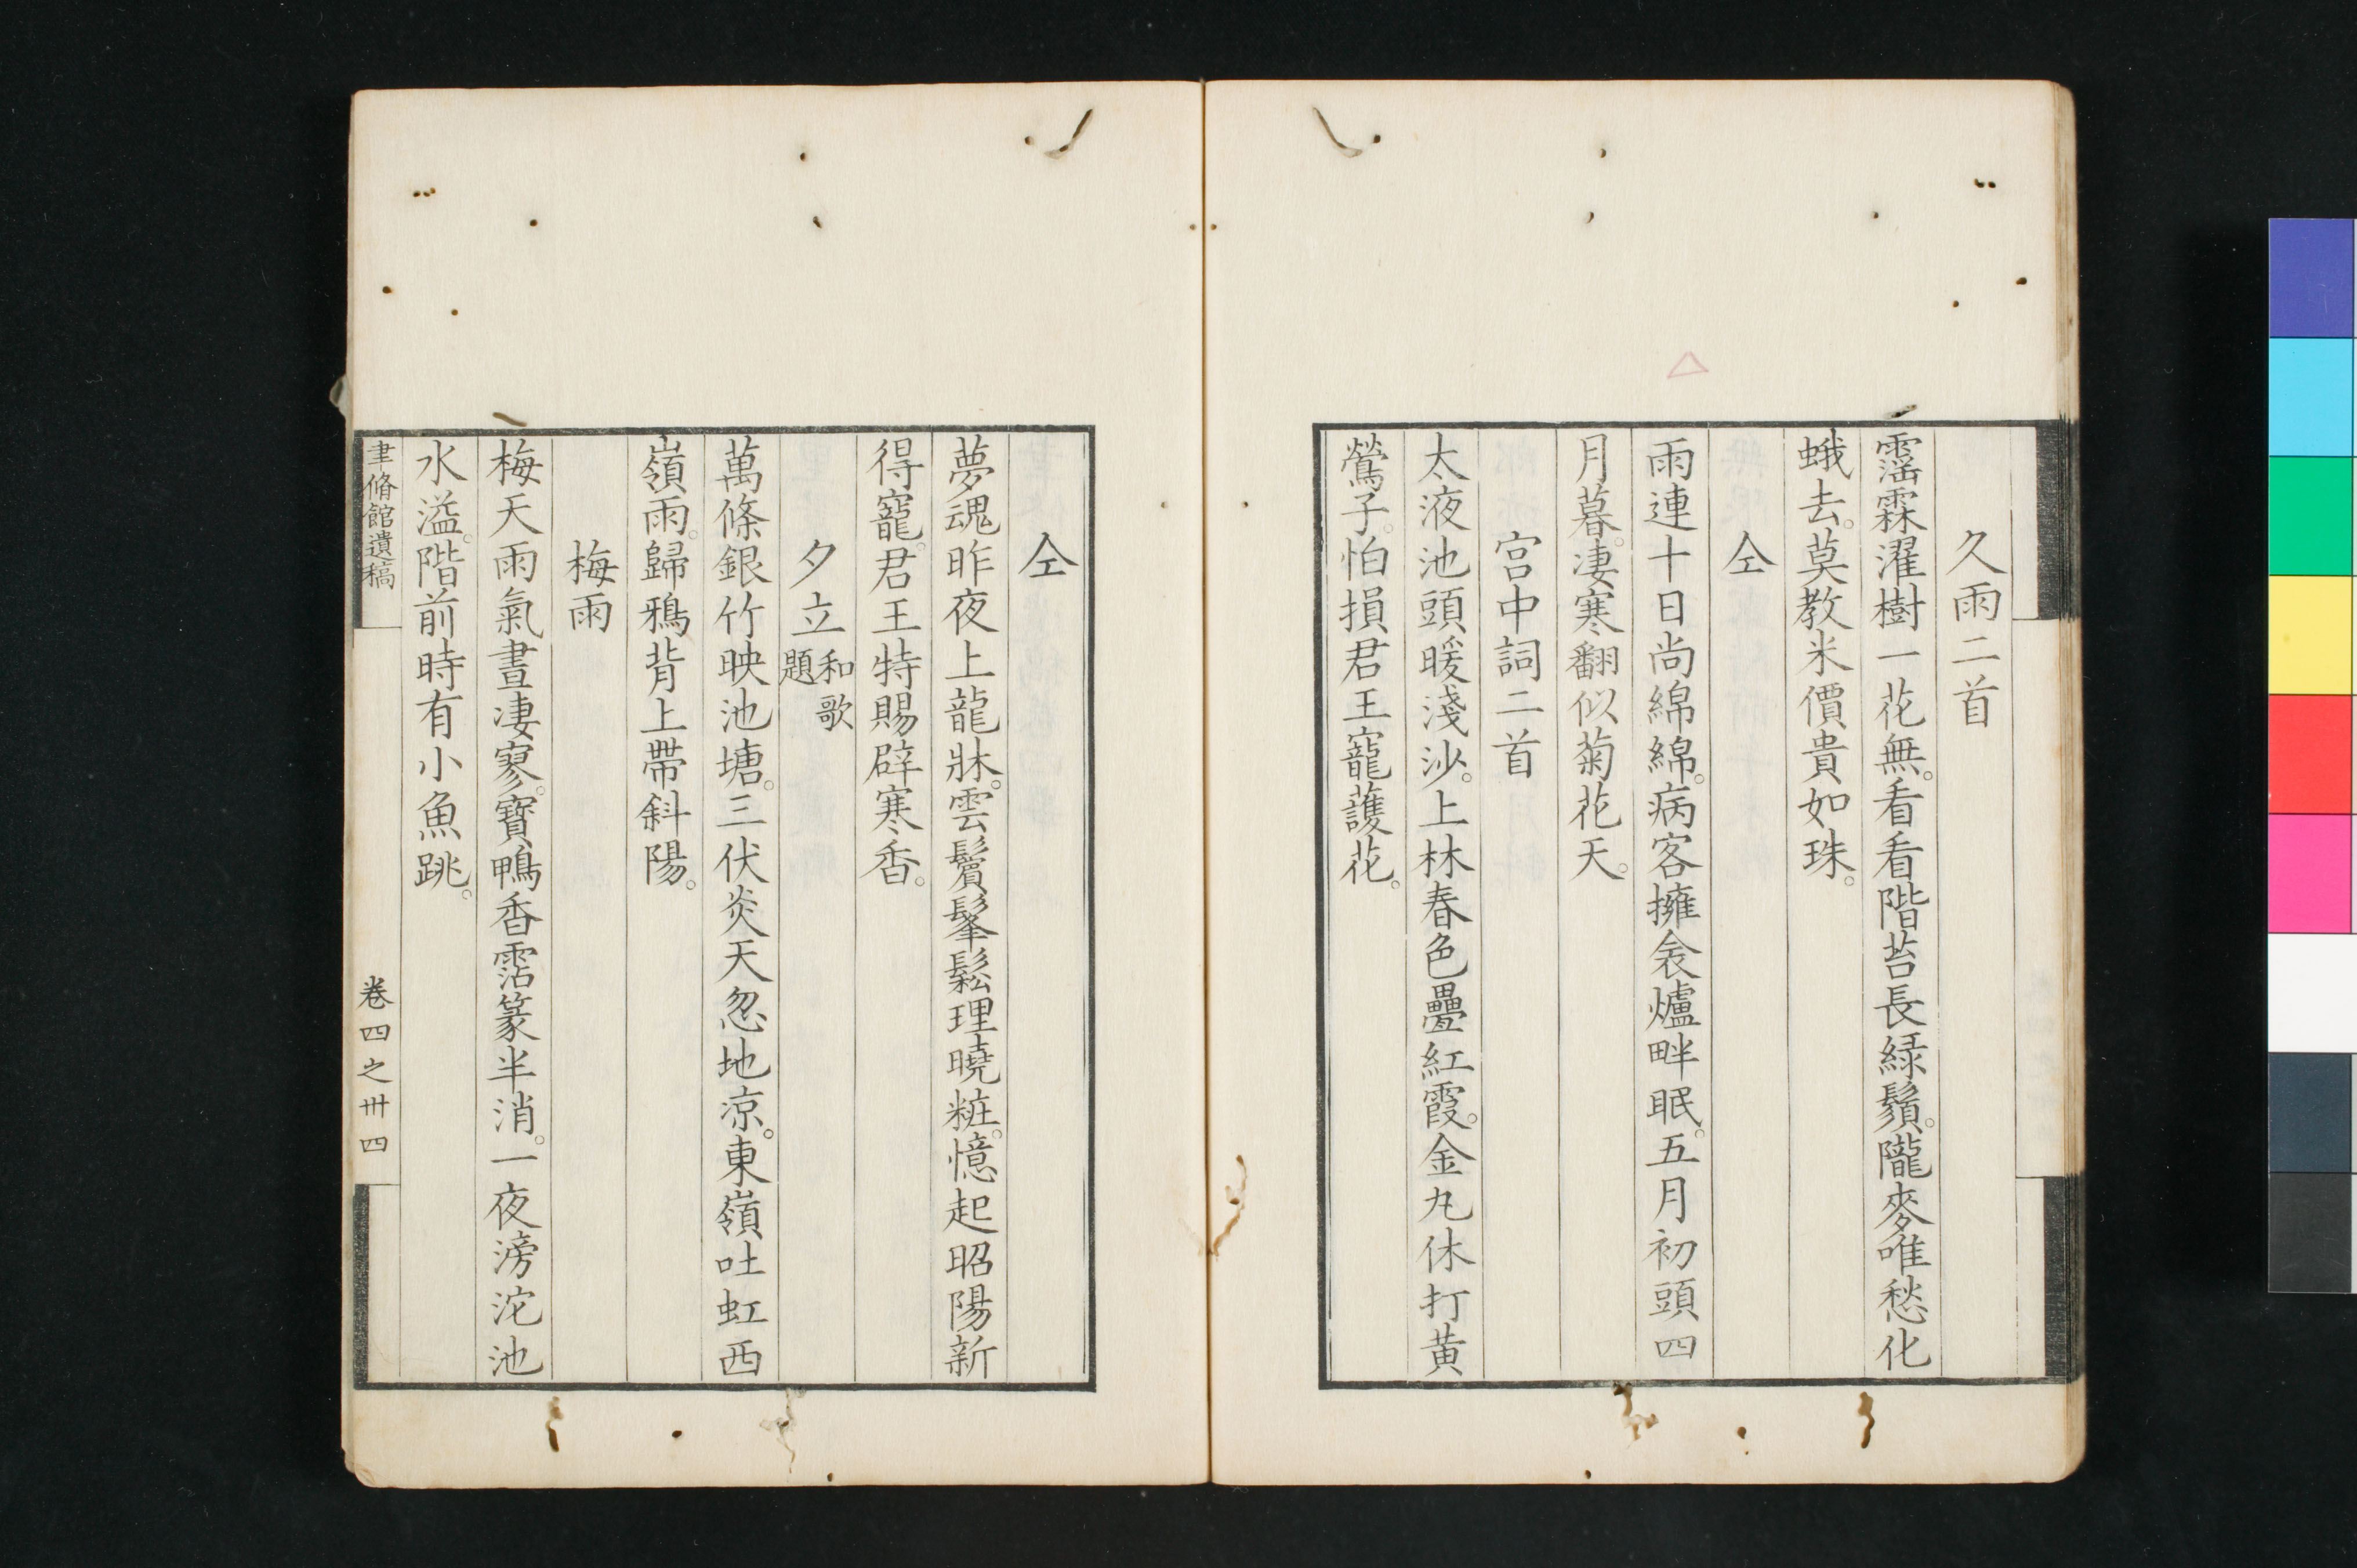 久雨二首
霪霖濯樹一花無。看看階苔長綠鬚。隴麥唯愁化
蛾去。莫教米價貴如珠。
仝
雨連十日尚綿綿。病客擁衾爐畔眠。五月初頭四
月暮。凄寒翻似菊花天。
宮中詞二首
太液池頭暖淺沙。上林春色疊紅霞。金丸休打黃
鶯子。怕損君王寵護花。
仝
夢魂昨夜上龍牀。雲鬢髼鬆理曉粧。憶起昭陽新
得寵。君王特賜辟寒香。
夕立 和歌題
萬條銀竹映池塘。三伏炎天忽地凉。東嶺吐虹西
嶺雨。歸鴉背上帶斜陽。
梅雨
梅天雨氣晝凄寥。寶鴨香霑篆半消。一夜滂沱池
水溢。階前時有小魚跳。
聿脩館遺稿 卷四之卅四